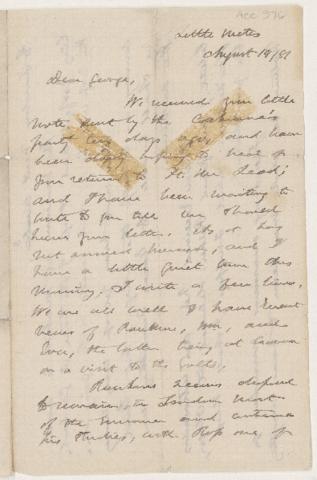 ACC 576
Little Metis
August 19/89
Dear George,
We received your little
note sent by the
party ten days ago and have
been daily hoping to hear of
your return to
and I have been waiting to
write to you till we should
have your letter. As it has
not arrived however, and I
have a little quiet time this
morning, I write a few lines.
We are all well & have recent
news of Rankine, and
Eva, the latter being at Cacouna
on a visit to the
Rankine seems disposed
to remain in London most
of the summer and continue
his studies, with Hope one of